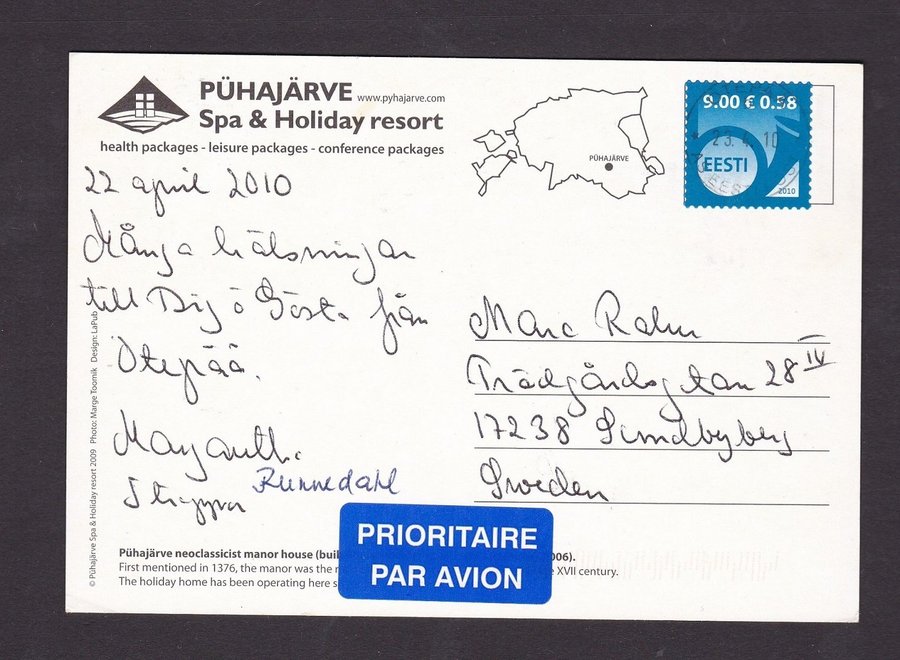 PÜHAJÄRVE www.pyhajarve.com
Spa & Holiday resort
health packages - leisure packages - conference packages
22 april 2010
Många hälsningar
till Dig o Gösta från
Otepää.
Margareth
Runnedahl
PÜHAJÄRVE
9.00 € 0.58
23. 4. 10
EESTI
EESTI
2010
Marc Rahm
Trädgårdsgatan 28 IV
17238 Sundbyberg
Sweden
PRIORITAIRE
PAR AVION
Pühajärve neoclassicist manor house (buil 006).
First mentioned in 1376, the manor was the XVII century.
The holiday home has been operating here s
© Pühajärve Spa & Holiday resort 2009 Photo: Marge Toomik Design: LaPub